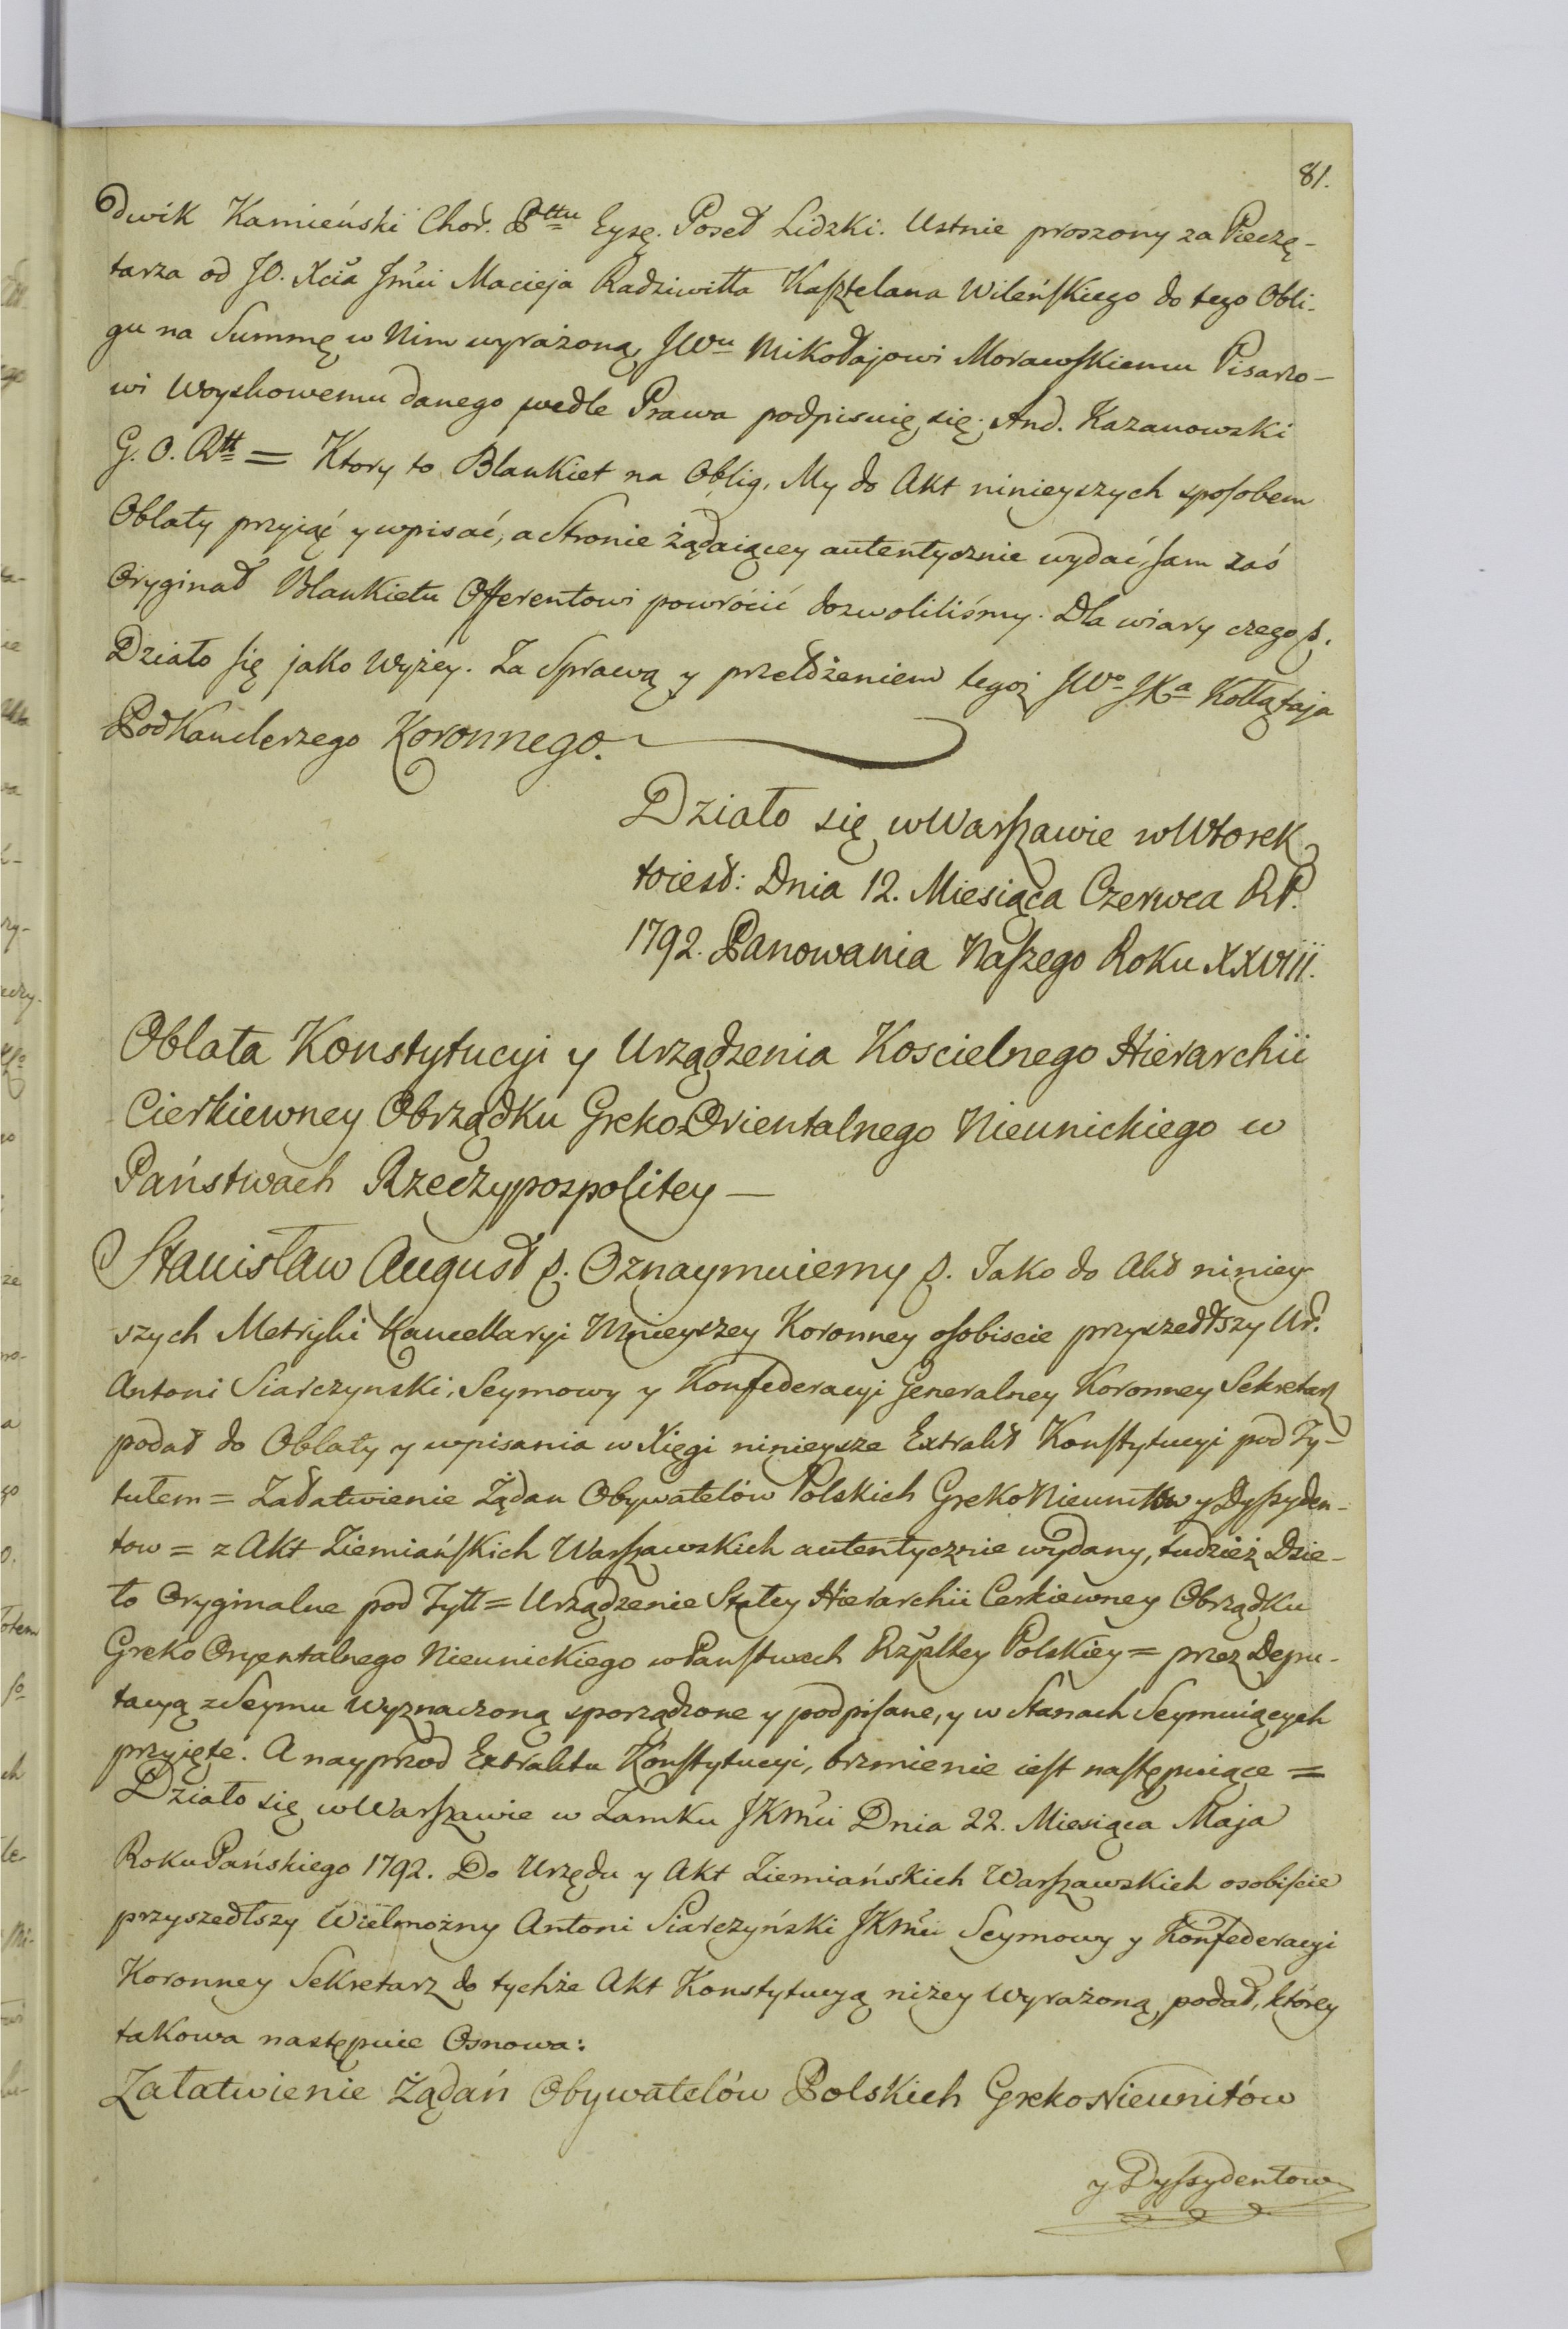 81.
dwik Kamieński Chor. Pttu Eysz. Poseł Lidzki. Ustnie proszony za Pieczę-
tarza od JO. Xcia Jmci Macieja Radziwiłła Kasztelana Wileńskiego do tego Obli-
gu na Summę w Nim wyrażoną JWu Mikołajowi Morawskiemu Pisarzo-
wi Woyskowemu danego wedle Prawa podpisuię się. And. Kazanowski
G. O. Rtt = Ktory to Blankiet na Oblig, My do Akt ninieyszych sposobem
Oblaty przyiąć y wpisać, a Stronie żądaiącey autentycznie wydać, sam zaś
Oryginał Blankietu Offerentowi powrócić dozwoliliśmy. Dla wiary czego p.
Działo się jako Wyżey. Za Sprawą y przełożeniem tegoż JWo JKa Kołłątaja
PodKanclerzego Koronnego.
Działo się w Warszawie w Wtorek
toiest: Dnia 12. Miesiąca Czerwca RP.
1792. Panowania Naszego Roku XXVIII.
Oblata Konstytucyi y Urządzenia Koscielnego Hierarchii
Cierkiewney Obrządku Greko Orientalnego Nieunickiego w
Państwach Rzeczypospolitey —
Stanisław August p. Oznaymuiemy p. Jako do Akt niniey-
szych Metryki Kancellaryi Mnieyszey Koronney osobiscie przyszedłszy Ur.
Antoni Siarczynski, Seymowy y Konfederacyi Generalney Koronney Sekretarz
podał do Oblaty y wpisania w Xięgi ninieysze Extrakt Konstytucyi pod Ty-
tułem = Załatwienie Żądan Obywatelów Polskich GrekoNieunitow y Dyssyden-
tow = z Akt Ziemiańskich Warszawskich autentycznie wydany, tudzież Dzie-
ło Oryginalne pod Tytt = Urządzenie Stałey Hierarchii Cerkiewney Obrządku
Greko Oryentalnego Nieunickiego w Panstwach Rzpltey Polskiey = przez Depu-
tacyą z Seymu Wyznaczoną sporządzone y podpisane, y w Stanach Seymuiących
przyięte. A nayprzod Extraktu Konstytucyi, brzmienie iest następuiące =
Działo się w Warszawie w Zamku JKMci Dnia 22. Miesiąca Maja
Roku Pańskiego 1792. Do Urzędu y Akt Ziemiańskich Warszawskich osobiscie
przyszedłszy Wielmożny Antoni Siarczyński JKMci Seymowy y Konfederacyi
Koronney Sekretarz do tychże Akt Konstytucyą niżey Wyrażoną podał, którey
takowa następuie Osnowa:
Załatwienie Żądań Obywatelów Polskich GrekoNieunitów
y Dyssydentow